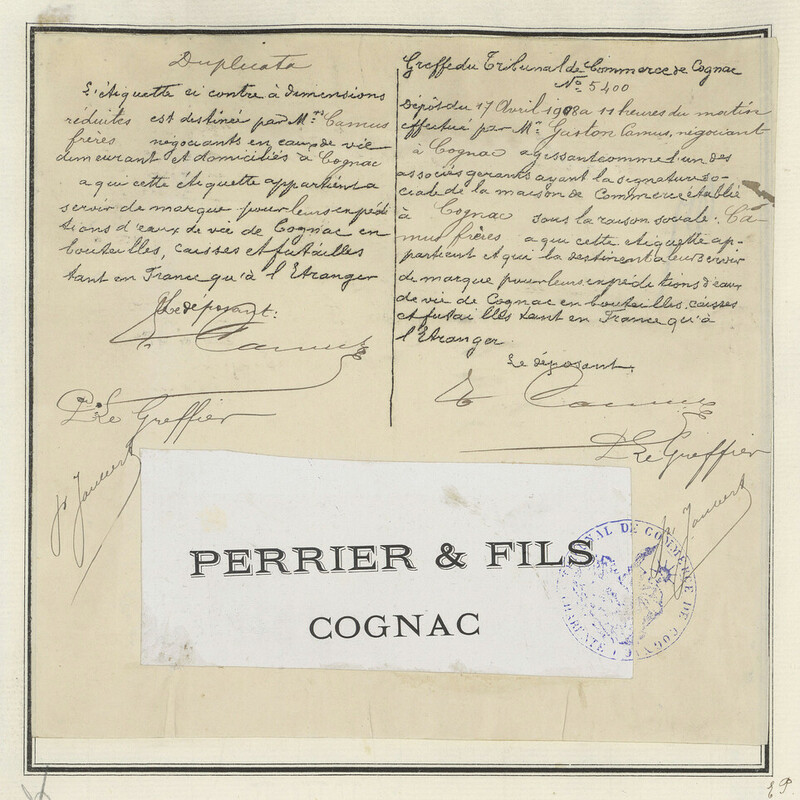 Duplicata
L'étiquette ci contre à dimensions
réduites est destinée par M.rs Camus
frères négociants en eaux de vie
demeurant et domiciliés à Cognac
a qui cette étiquette appartient a
servir de marque pour leurs expédi
tions d'eaux de vie de Cognac en
bouteilles, caisses et futailles
tant en France qu'à l'Etranger
Le déposant:
Camus
Le Greffier
Greffe du Tribunal de Commerce de Cognac
No 5400
Dépôt du 17 Avril 1908 a 11 heures du matin
effectué par Mr Gaston Camus, négociant
à Cognac agissant comme l'un des
associés gerants ayant la signature so-
ciale de la maison de Commerce établie
à Cognac sous la raison sociale: Ca-
mus frères a qui cette etiquette ap-
partient et qui la destinent a leur servir
de marque pour leurs expéditions d'eaux
de vie de Cognac en bouteilles, caisses
et futailles tant en France qu'à
l'Etranger.
Le déposant.
Camus
Le Greffier
PERRIER & FILS
COGNAC
TRIBUNAL DE COMMERCE DE COGNAC
CHARENTE